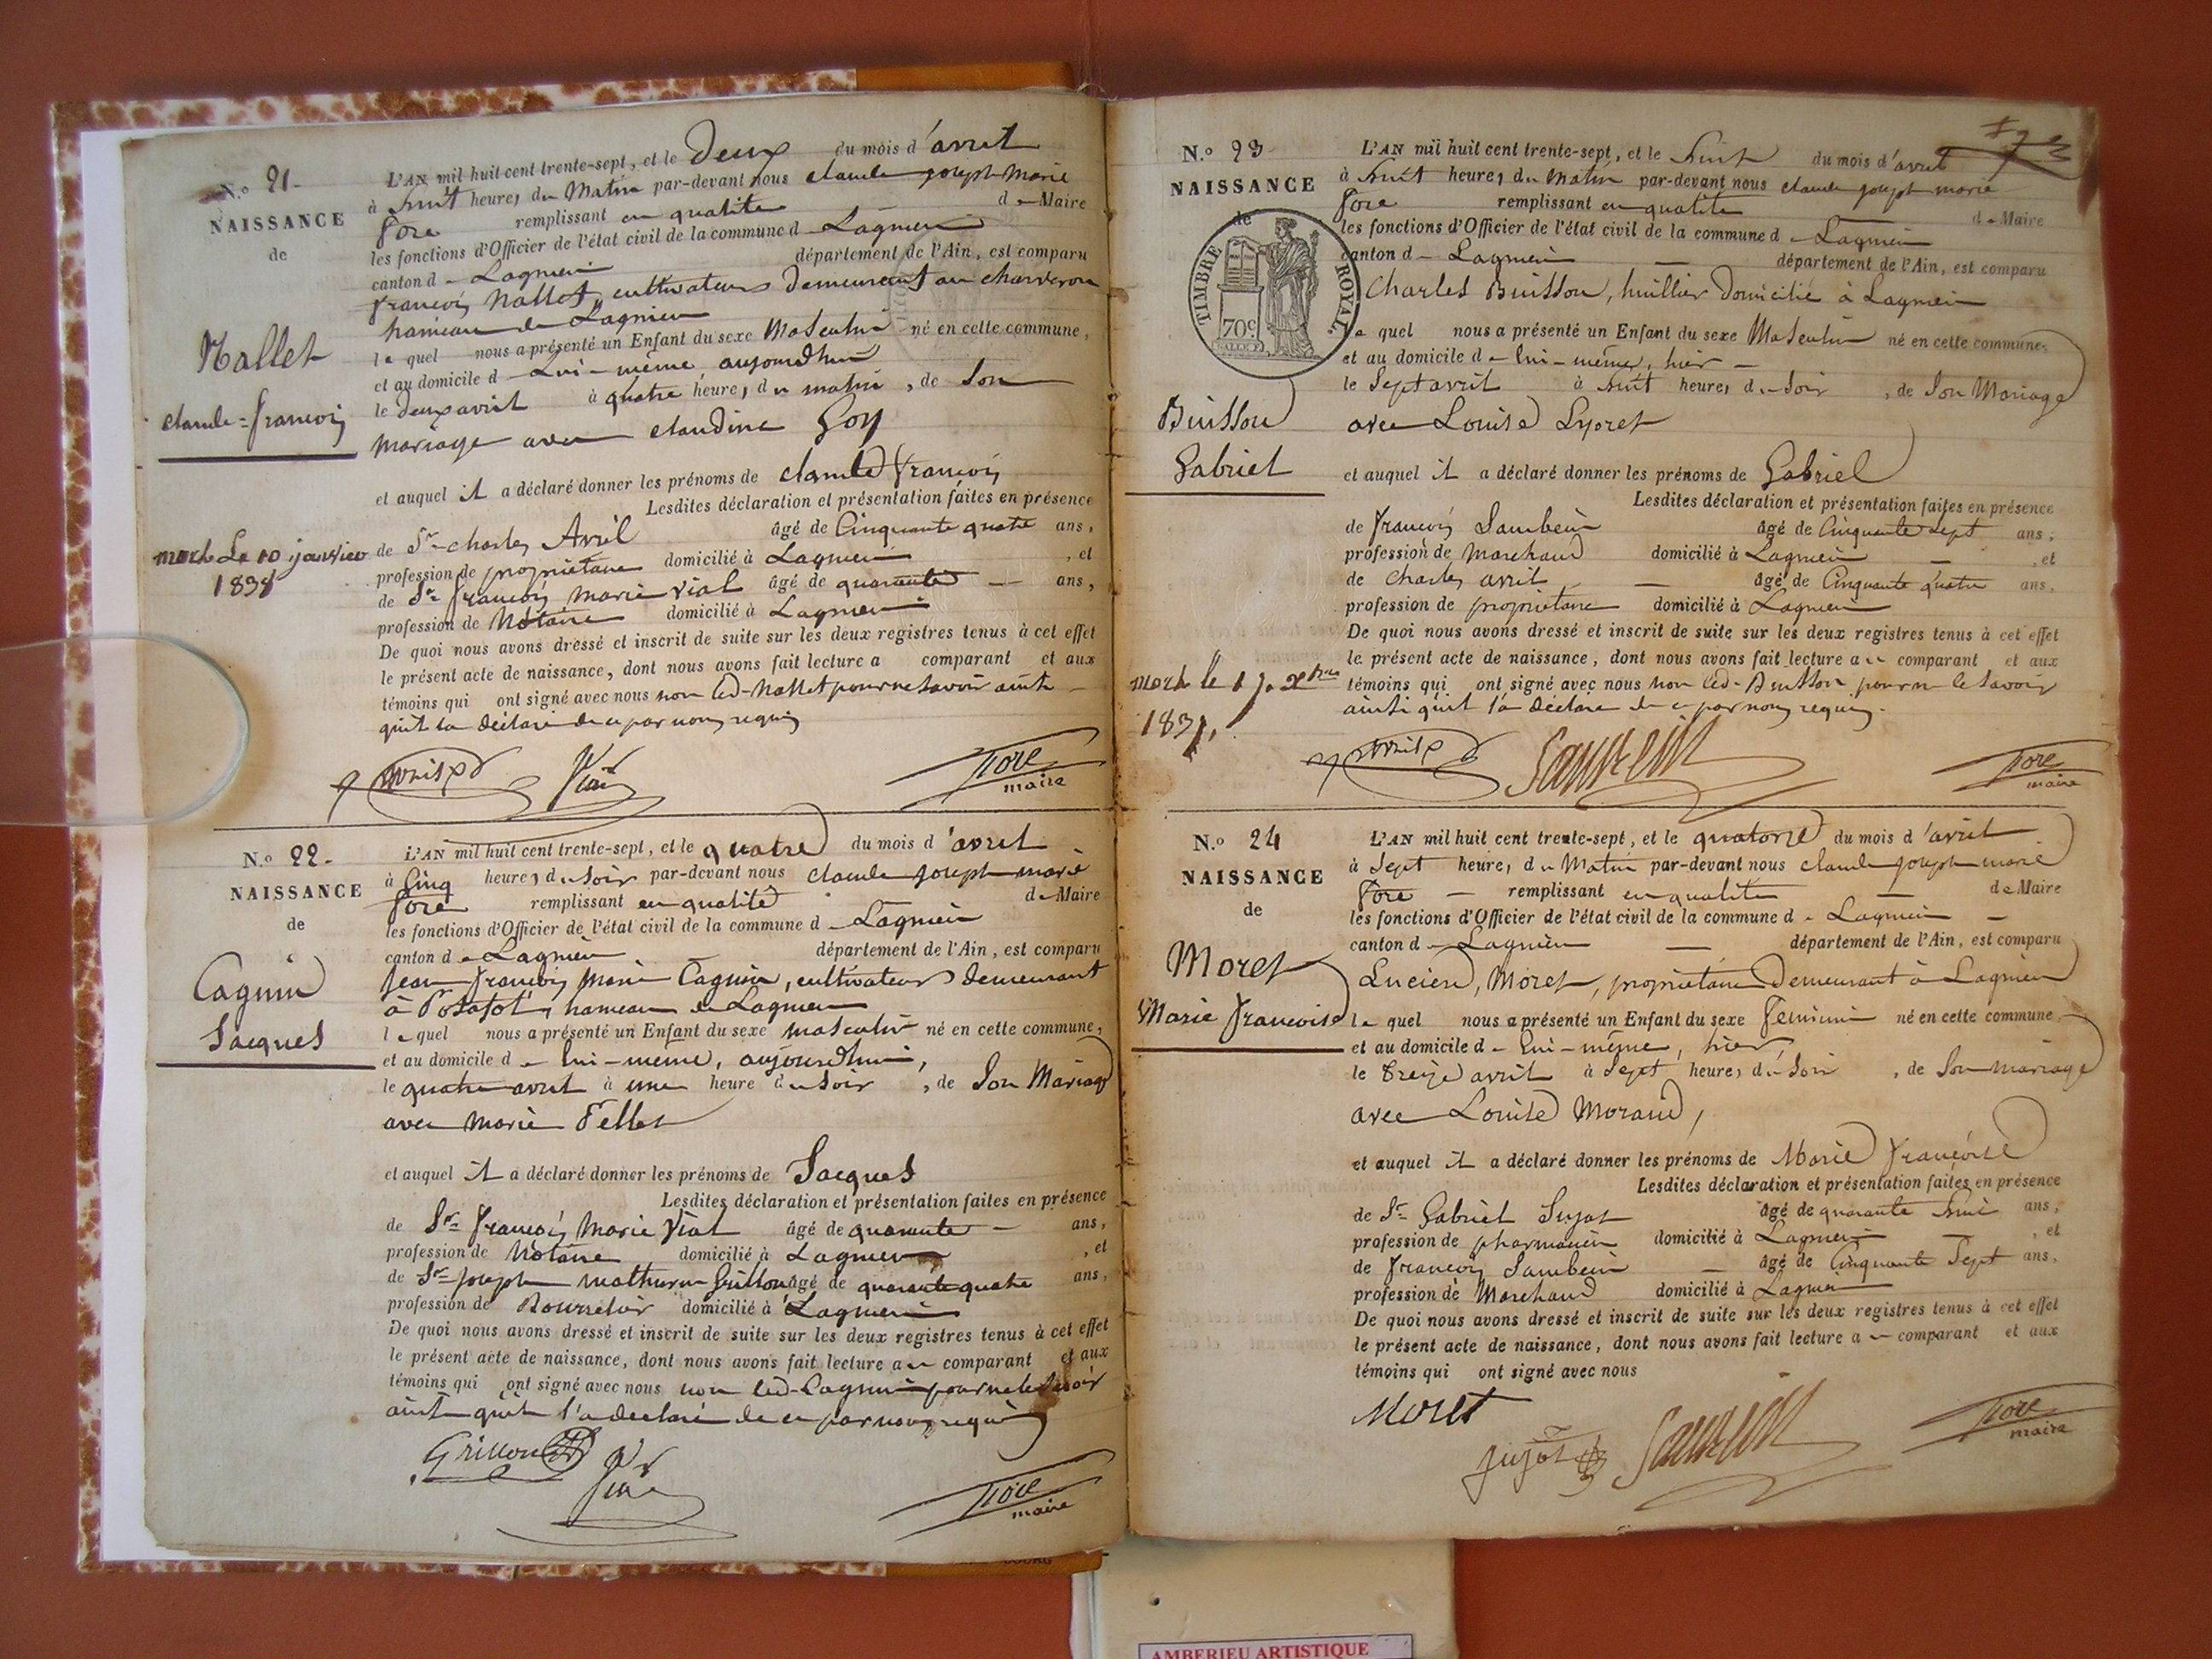 N.o 21-
NAISSANCE
de
Nallet
claude=françois
mort Le 10 janvier
183
L'AN mil huit cent trente-sept, et le Deux du mois d'avril
à huit heures du Matin par-devant nous claude joseph marie
fore remplissant en qualité de Maire
les fonctions d'Officier de l'état civil de la commune d Lagnieu
canton d Lagnieu département de l'Ain, est comparu
françois Nallet, cultivateur Demeurant au
hameau de Lagnieu
le quel nous a présenté un Enfant du sexe Masculin né en cette commune,
et au domicile d Lui-même aujourdhui
le Deux avril à quatre heures du matin, de Son
Mariage avec claudine Goy
et auquel il a déclaré donner les prénoms de claude françois
Lesdites déclaration et présentation faites en présence
de Sr charles Avril âgé de Cinquante quatre ans,
profession de propriétaire domicilié à Lagnieu, et
de Sr françois marie vial âgé de quarante ans,
profession de Notaire domicilié à Lagnieu
De quoi nous avons dressé et inscrit de suite sur les deux registres tenus à cet effet
le présent acte de naissance, dont nous avons fait lecture a comparant et aux
témoins qui ont signé avec nous non led-Nallet pour ne savoir ainsi
quil la déclaré de ce par nous requis
Avril Vial fore
maire
N.o 22-
NAISSANCE
de
Cagnin
Jacques
L'AN mil huit cent trente-sept, et le quatre du mois d'avril
à Cinq heures du Soir par-devant nous claude joseph marie
fore remplissant en qualité de Maire
les fonctions d'Officier de l'état civil de la commune d Lagnieu
canton de Lagnieu département de l'Ain, est comparu
Jean françois marie Cagnin, cultivateur demeurant
à Posafol, hameau de Lagnieu
le quel nous a présenté un Enfant du sexe masculin né en cette commune,
et au domicile de lui-meme, aujourdhui,
le quatre avril à une heure du Soir, de Son Mariage
avec marie Tellet
et auquel il a déclaré donner les prénoms de Jacques
Lesdites déclaration et présentation faites en présence
de Sr françois Marie Vial âgé de quarante ans,
profession de Notaire domicilié à Lagnieu, et
de Sr joseph mathurin Grillon âgé de quarante quatre ans,
profession de Bourrelier domicilié à Lagnieu
De quoi nous avons dressé et inscrit de suite sur les deux registres tenus à cet effet
le présent acte de naissance, dont nous avons fait lecture au comparant et aux
témoins qui ont signé avec nous non led-Cagnin pour ne le savoir
ainsi quil l'a declaré de ce par nous requis
Grillon Vial
fore
maire
N.o 23
NAISSANCE
de
TIMBRE ROYAL.
70c
Buisson
Gabriel
mort le 17. Xbre
1837,
L'AN mil huit cent trente-sept, et le huit du mois d'avril
à huit heures du Matin par-devant nous claude joseph marie
fore remplissant en qualité de Maire
les fonctions d'Officier de l'état civil de la commune d Lagnieu
canton d Lagnieu département de l'Ain, est comparu
Charles Buisson, huillier Domicilié à Lagnieu
le quel nous a présenté un Enfant du sexe Masculin né en cette commune,
et au domicile de lui-même, hier
le Sept avril à huit heures du Soir, de Son Mariage
avec Louise Lyoret
et auquel il a déclaré donner les prénoms de Gabriel
Lesdites déclaration et présentation faites en présence
de françois Sambein âgé de Cinquante sept ans,
profession de Marchand domicilié à Lagnieu, et
de charles avril âgé de Cinquante quatre ans,
profession de propriétaire domicilié à Lagnieu
De quoi nous avons dressé et inscrit de suite sur les deux registres tenus à cet effet
le présent acte de naissance, dont nous avons fait lecture au comparant et aux
témoins qui ont signé avec nous non led-Buisson pour ne le savoir
ainsi quil l'a declaré de ce par nous requis.
Avril Sambein fore
maire
N.o 24
NAISSANCE
de
Moret
Marie françoise
L'AN mil huit cent trente-sept, et le quatorze du mois d'avril
à Sept heures du Matin par-devant nous claude joseph marie
fore remplissant en qualité de Maire
les fonctions d'Officier de l'état civil de la commune d Lagnieu
canton d Lagnieu département de l'Ain, est comparu
Lucien, Moret, propriétaire Demeurant à Lagnieu
le quel nous a présenté un Enfant du sexe feminin né en cette commune,
et au domicile de lui-même, hier
le treize avril à Sept heures du Soir, de Son mariage
avec Louise Morand,
et auquel il a déclaré donner les prénoms de Marie françoise
Lesdites déclaration et présentation faites en présence
de Sr Gabriel Jujat âgé de quarante huit ans,
profession de pharmacien domicilié à Lagnieu, et
de françois Sambein âgé de Cinquante Sept ans,
profession de Marchand domicilié à Lagnieu
De quoi nous avons dressé et inscrit de suite sur les deux registres tenus à cet effet
le présent acte de naissance, dont nous avons fait lecture au comparant et aux
témoins qui ont signé avec nous
Moret
Jujat Sambein fore
maire
AMBERIEU ARTISTIQUE